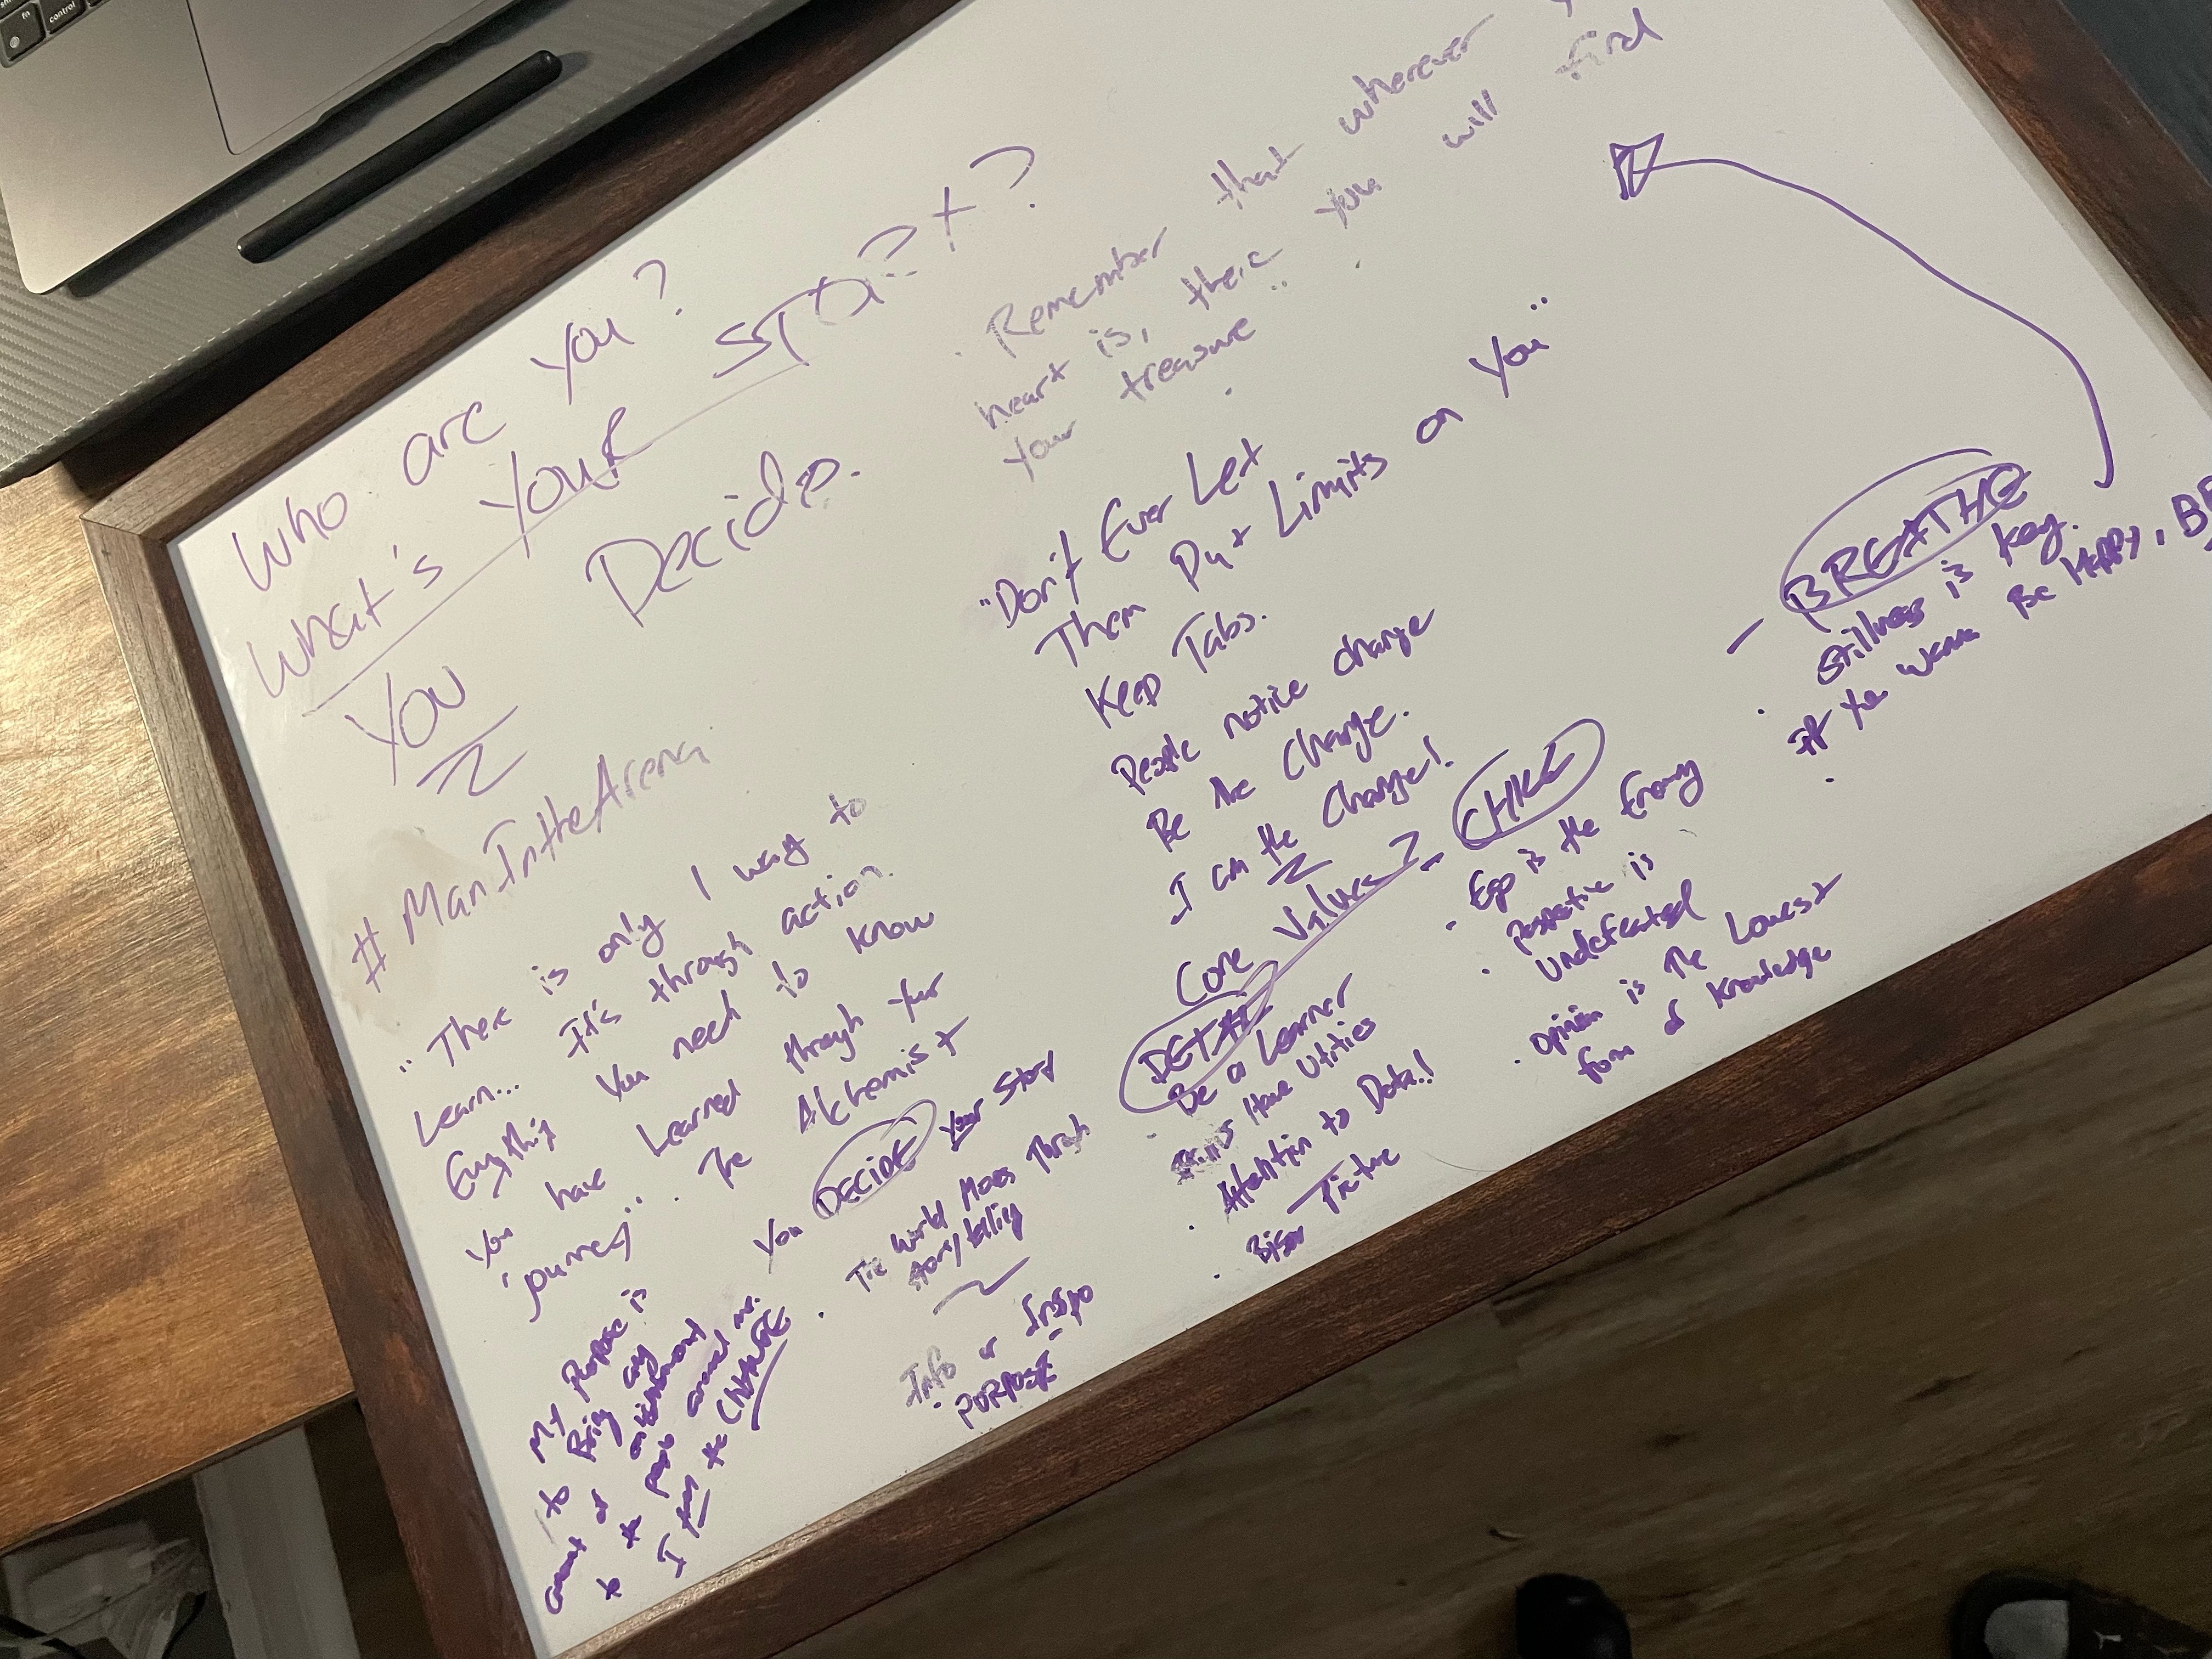 Who are you?
What's your STORY?
YOU Decide.
#ManIntheArena
"There is only 1 way to
Learn... It's through action.
Everything you need to know
you have Learned through your
journey". The Alchemist
My Purpose is
to Bring any
amount of
to the people around me.
I am the CHANGE
You DECIDE your story
The World Moves Through
storytelling
Info or Inspo
PURPOSE
Remember that wherever
heart is, there you will find
your treasure"
"Don't Ever Let
Them Put Limits on You"
Keep Tabs.
People notice change
Be the Change.
I am the Change!
Core Values?
DETAIL
Be a Learner
Have
Attention to Detail!
Picture
Ego is the Enemy
is
undefeated
Opinion is the Lowest
form of knowledge
- BREATHE
Stillness is key.
If you wanna Be Happy, BE
fn
control